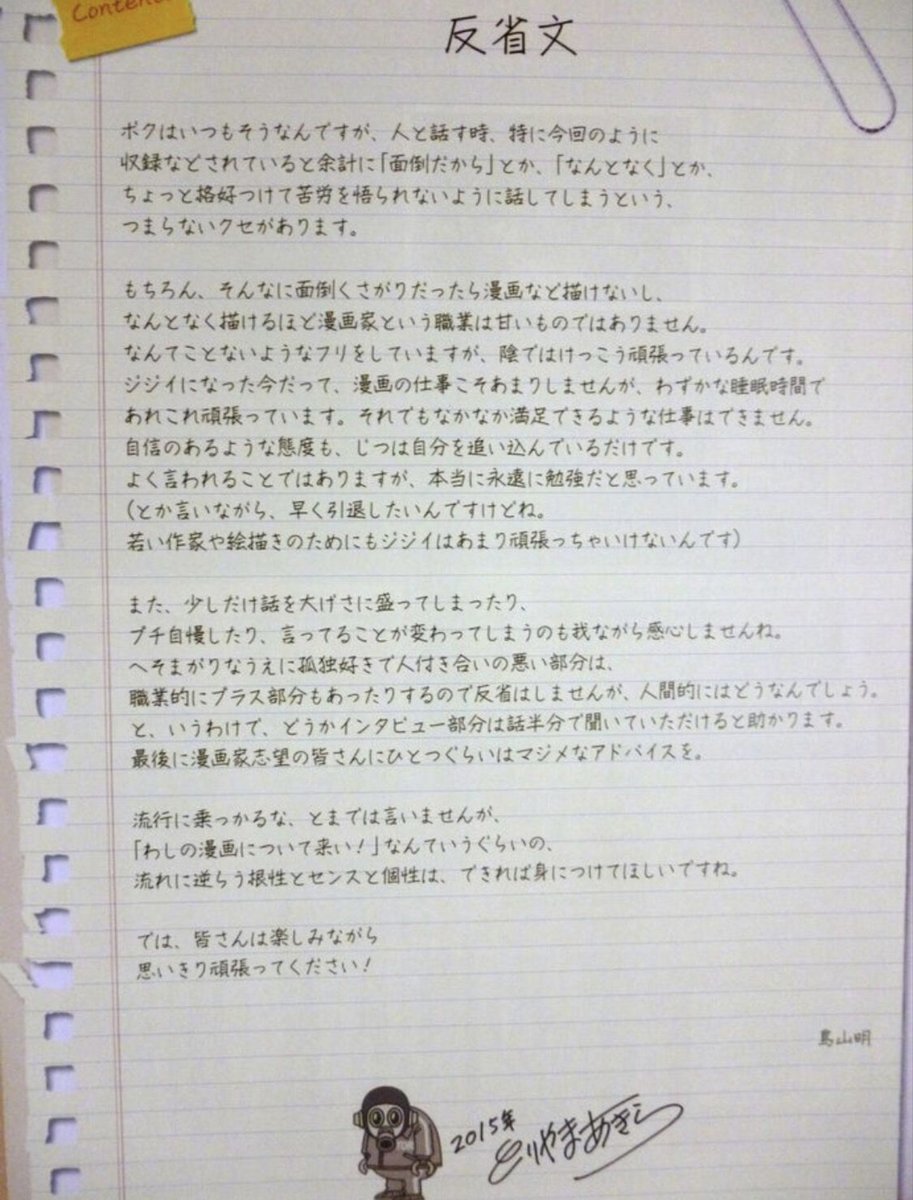 Conten
反省文
ボクはいつもそうなんですが、人と話す時、特に今回のように
収録などされていると余計に「面倒だから」とか、「なんとなく」とか、
ちょっと格好つけて苦労を悟られないように話してしまうという、
つまらないクセがあります。
もちろん、そんなに面倒くさがりだったら漫画など描けないし、
なんとなく描けるほど漫画家という職業は甘いものではありません。
なんてことないようなフリをしていますが、陰ではけっこう頑張っているんです。
ジジイになった今だって、漫画の仕事こそあまりしませんが、わずかな睡眠時間で
あれこれ頑張っています。それでもなかなか満足できるような仕事はできません。
自信のあるような態度も、じつは自分を追い込んでいるだけです。
よく言われることではありますが、本当に永遠に勉強だと思っています。
(とか言いながら、早く引退したいんですけどね。
若い作家や絵描きのためにもジジイはあまり頑張っちゃいけないんです)
また、少しだけ話を大げさに盛ってしまったり、
プチ自慢したり、言ってることが変わってしまうのも我ながら感心しませんね。
へそまがりなうえに孤独好きで人付き合いの悪い部分は、
職業的にプラス部分もあったりするので反省はしませんが、人間的にはどうなんでしょう。
と、いうわけで、どうかインタビュー部分は話半分で聞いていただけると助かります。
最後に漫画家志望の皆さんにひとつぐらいはマジメなアドバイスを。
流行に乗っかるな、とまでは言いませんが、
「わしの漫画について来い!」なんていうぐらいの、
流れに逆らう根性とセンスと個性は、できれば身につけてほしいですね。
では、皆さんは楽しみながら
思いきり頑張ってください!
鳥山明
2015年 とりやまあきら